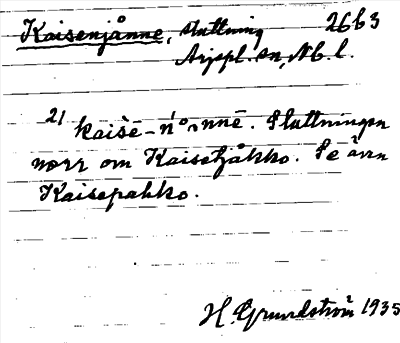 Kaisenjånne, sluttning 2663
Arjepl. sn, Nb. l.
21 kaisē-ń°nnē. Sluttningen
norr om Kaisetjåkko. Se även
Kaisepakko.
H. Grundström 1935